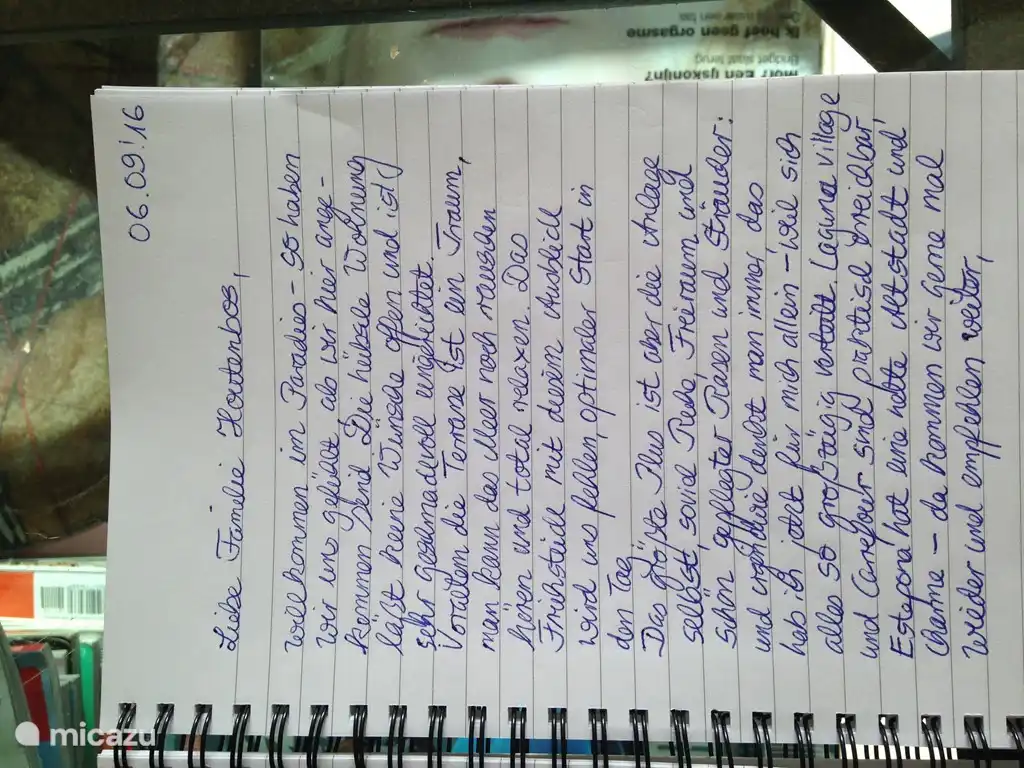 06.09.'16
Liebe Familie Houtenbos,
willkommen im Paradies - so haben
wir uns gefühlt als wir hier ange-
kommen sind. Die hübsche Wohnung
läßt keine Wünsche offen und ist
sehr geschmackvoll eingerichtet.
Vorallem die Terasse ist ein Traum,
man kann das Meer noch rauschen
hören und total relaxen. Das
Frühstück mit diesem Ausblick
wird uns fehlen, optimaler Start in
den Tag
Das größte Plus ist aber die Anlage
selbst, soviel Ruhe, Freiraum und
schön gepflegter Rasen und Sträucher.
und irgendwie denkt man immer, das
hab ich jetzt für mich allein - weil sich
alles so großzügig verteilt. Laguna village
und Carrefour sind praktisch erreichbar,
Estepona hat eine nette Altstadt und
Charme - da kommen wir gerne mal
wieder und empfehlen weiter,
Ik hoef geen orgasme
Bridget slaat terug
Een ijskonijn?
micazu